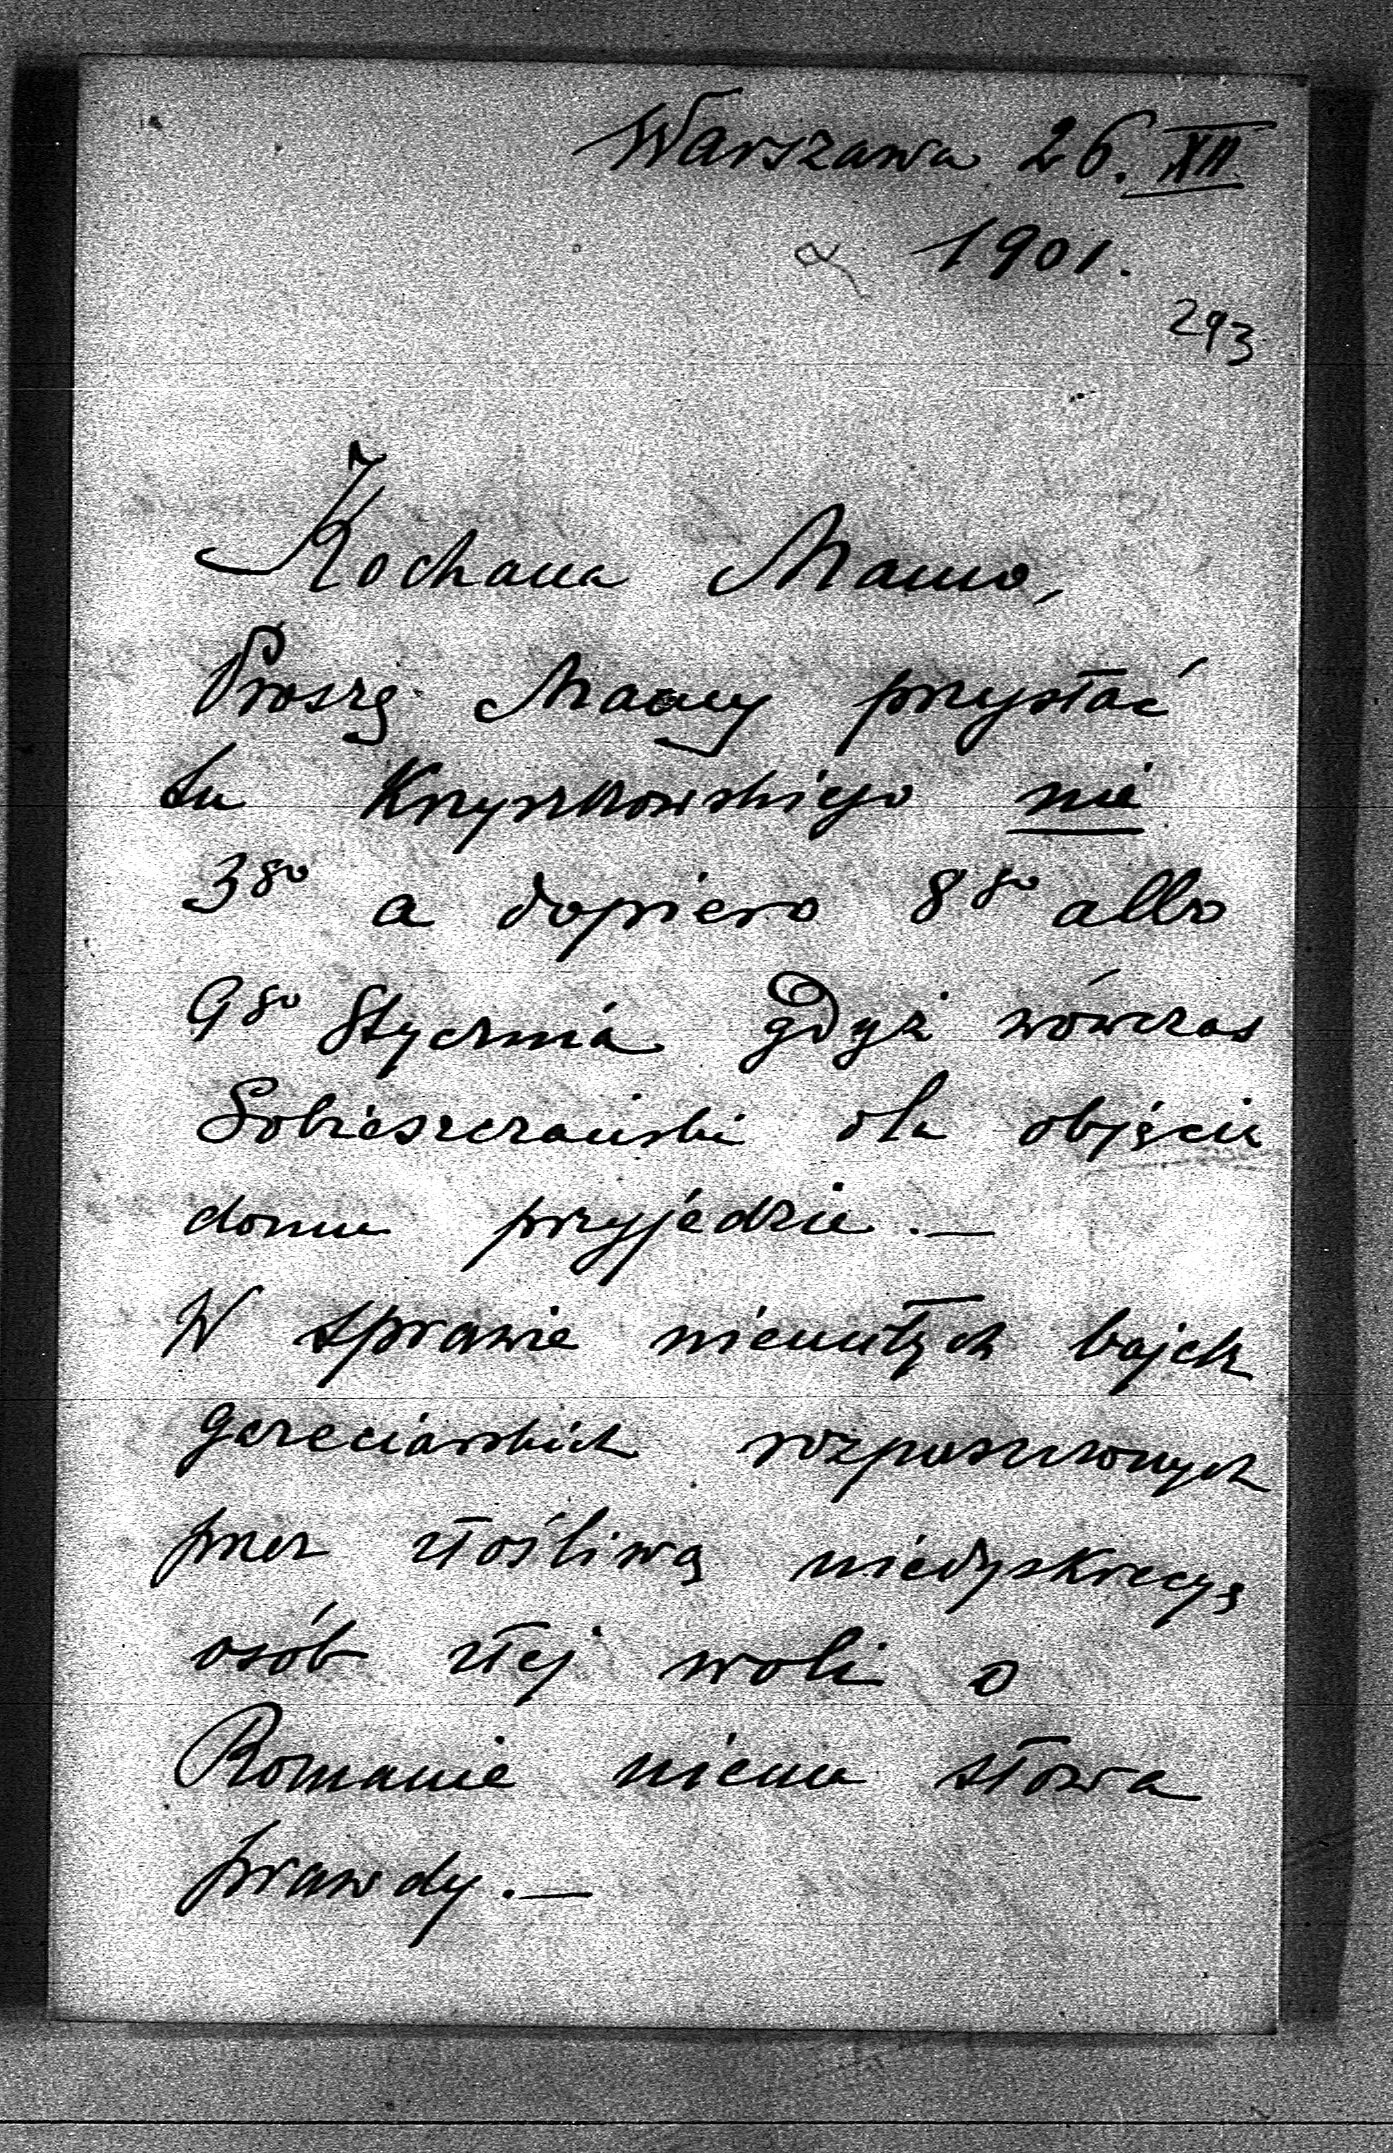 Warszawa 26. XII
1901.
293
Kochana Mamo,
Proszę Mamy przysłać
tu Krzyszkowskiego nie
3go a dopiero 8go albo
9go Stycznia gdyż wówczas
Sobieszczański dla objęcia
domu przyjedzie. —
W sprawie niemiłych bajek
gazeciarskich rozpuszczonych
przez złośliwą niedyskrecyą
osób złej woli o
Romanie niema słowa
prawdy. —